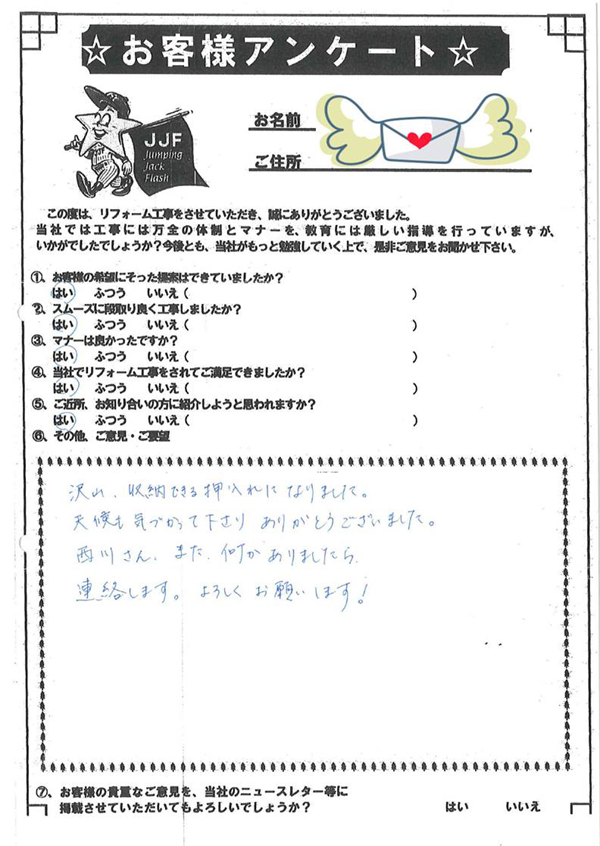 ☆お客様アンケート☆
JJF
Jumping
Jack
Flash
お名前
ご住所
この度は、リフォーム工事をさせていただき、誠にありがとうございました。
当社では工事には万全の体制とマナーを、教育には厳しい指導を行っていますが、
いかがでしたでしょうか？今後とも、当社がもっと勉強していく上で、是非ご意見をお聞かせ下さい。
①、お客様の希望にそった提案はできていましたか？
はい ふつう いいえ（ ）
②、スムーズに段取り良く工事しましたか？
はい ふつう いいえ（ ）
③、マナーは良かったですか？
はい ふつう いいえ（ ）
④、当社でリフォーム工事をされてご満足できましたか？
はい ふつう いいえ（ ）
⑤、ご近所、お知り合いの方に紹介しようと思われますか？
はい ふつう いいえ（ ）
⑥、その他、ご意見・ご要望
沢山、収納できる押入れになりました。
天候も気づかって下さり ありがとうございました。
西川さん、また、何かありましたら、
連絡します。よろしくお願いします！
⑦、お客様の貴重なご意見を、当社のニュースレター等に
掲載させていただいてもよろしいでしょうか？ はい いいえ